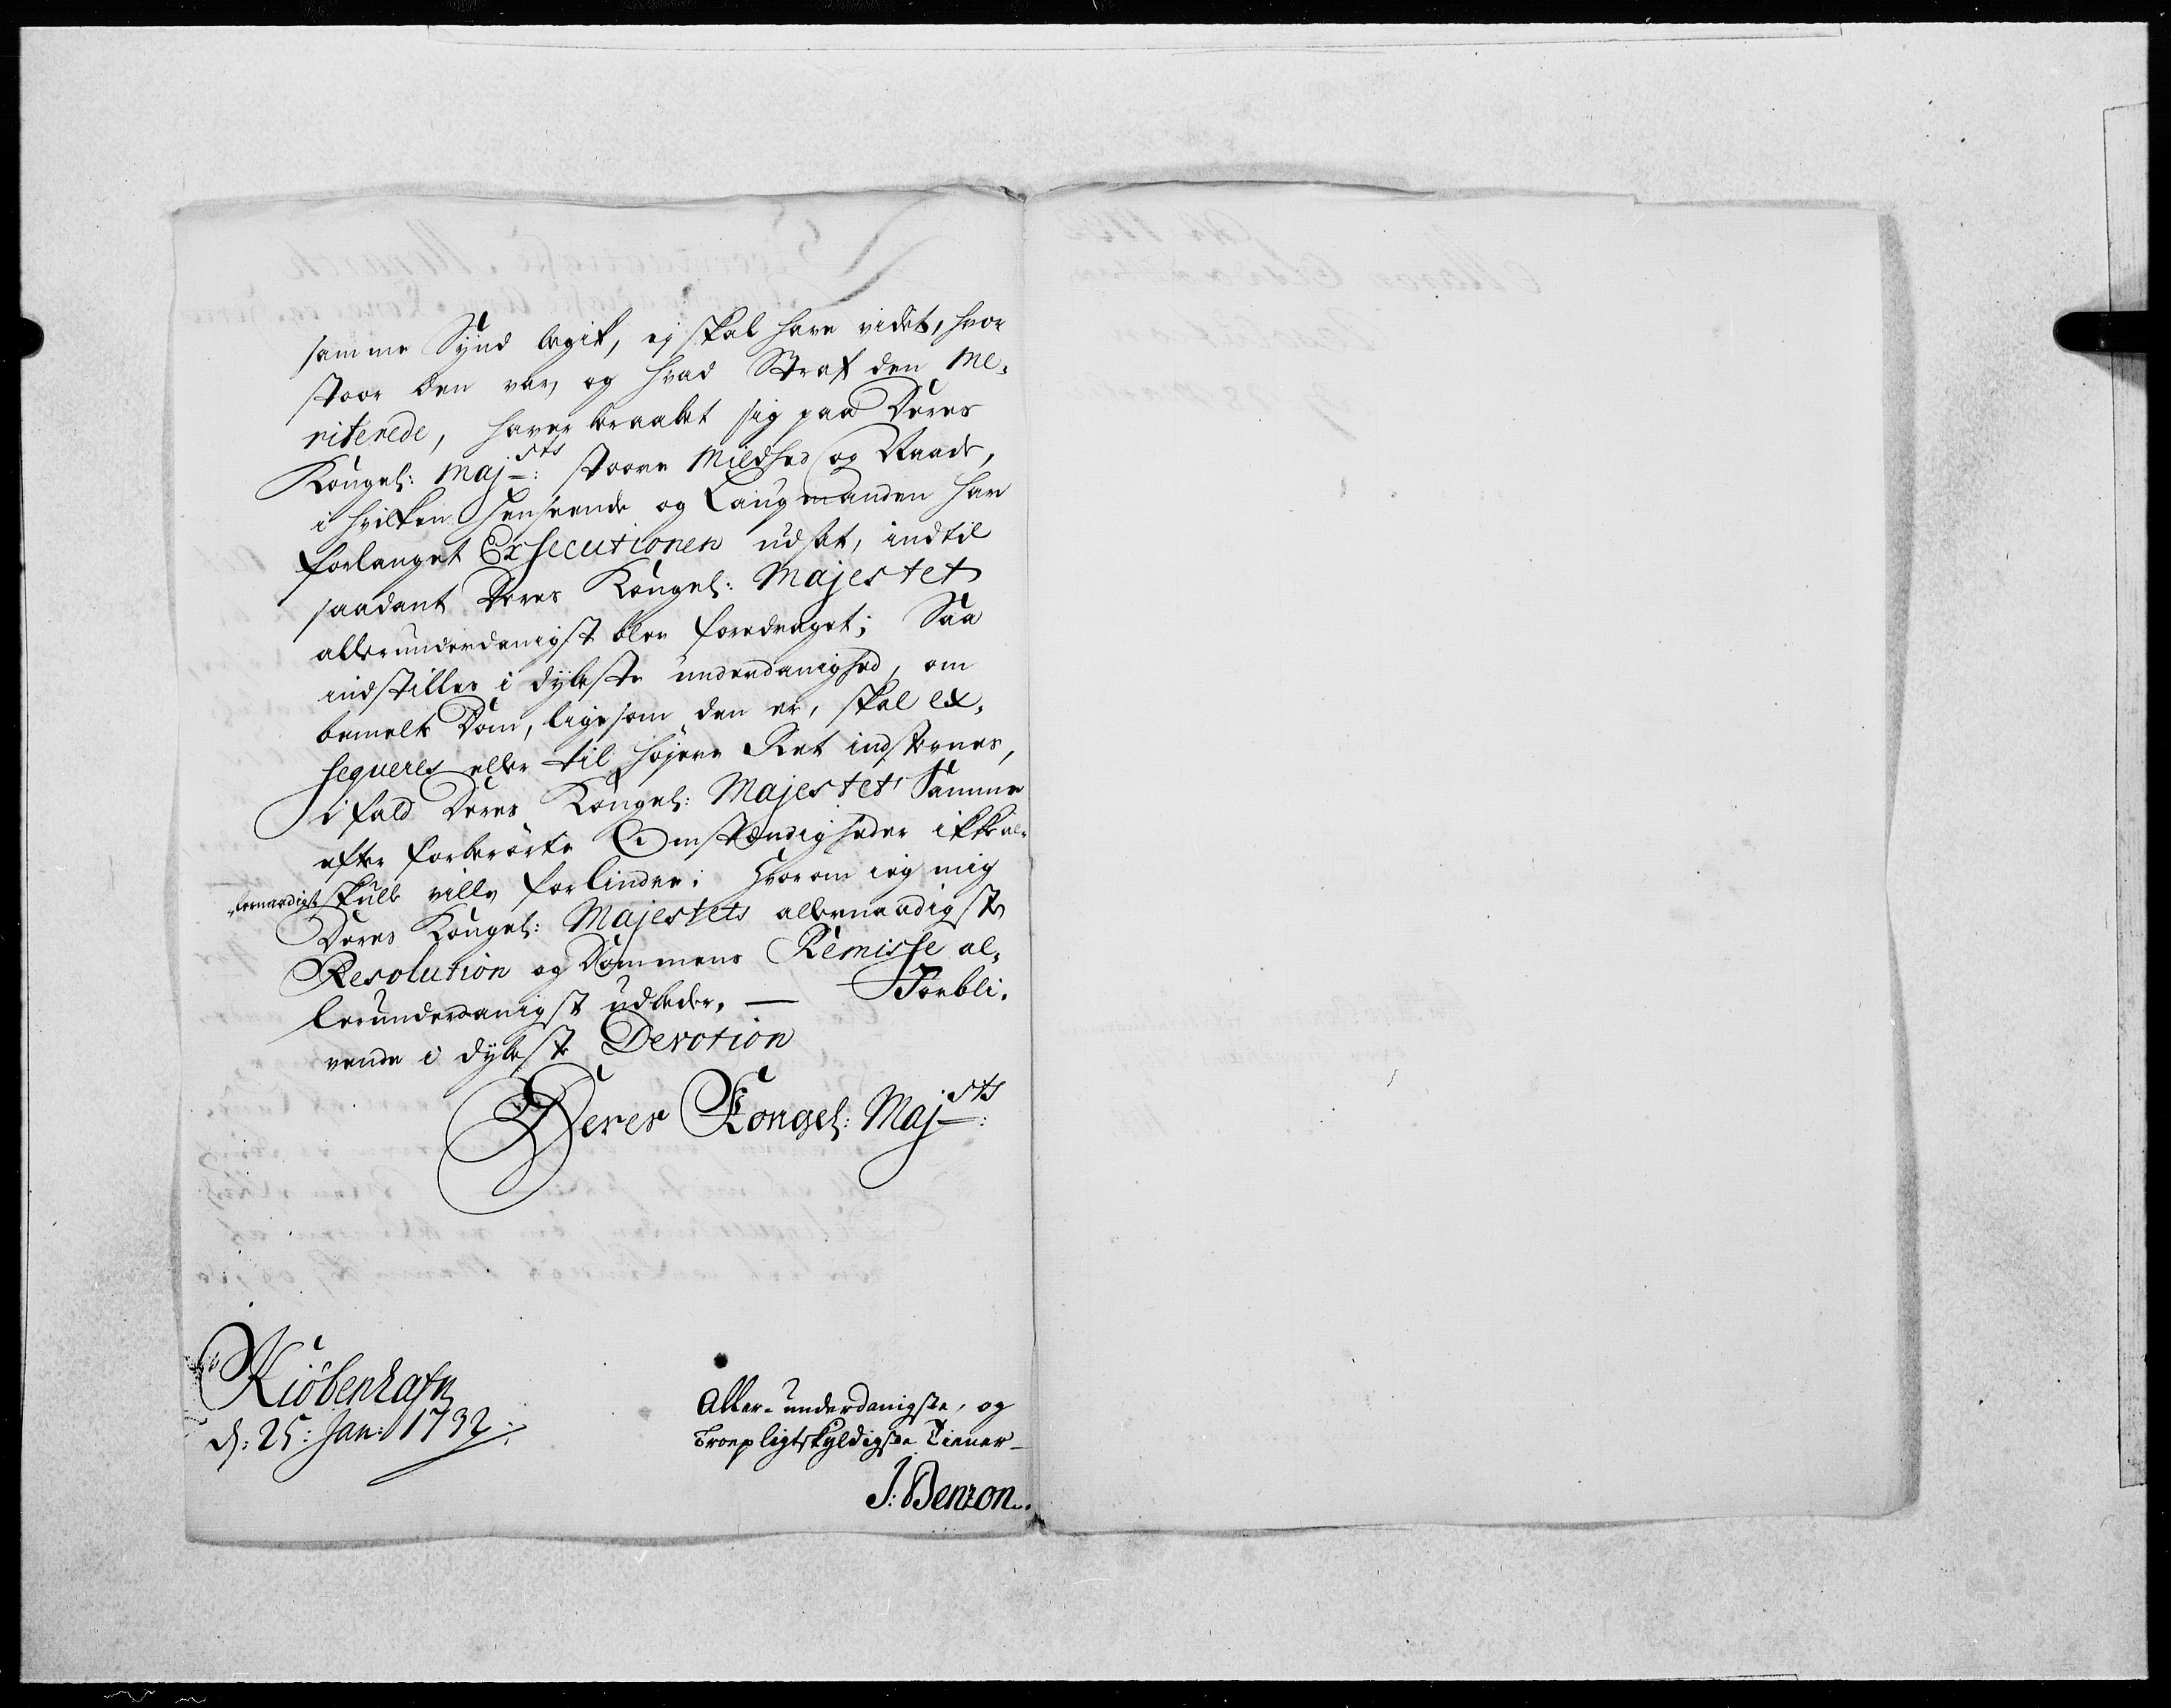 samme Synd begik, ej skal have vidst, hvor
stoor den var, og hvad Straf den me-
riterede, haver beraabt sig paa Deres
Kongel: Maj:sts stoore Mildhed og Naade,
i hvilken Henseende og Laugmanden har
forlanget Exsecutionen udsat, indtil
saadant Deres Kongel: Majestet
allerunderdanigst blev foredraget; Saa
indstilles i dybeste underdanighed, om
bemelte Dom, ligesom den er, skal ex-
seqveres eller til højere Ret indstevnes,
ifald Deres Kongel: Majestet Samme
efter forberørte Omstændigheder ikke al-
lernaadigst skulle ville forlindre; Hvorom ieg mig
Deres Kongel: Majestets allernaadigste
Resolution og Dommens Remisse al-
lerunderdanigst udbeder. — Forbli-
vende i dybeste Devotion
Deres Kongel: Maj:sts
Kiöbenhafn
d: 25: Jan: 1732
Aller-underdanigste, og
Troepligtskyldigste Tiener
J: Benzon